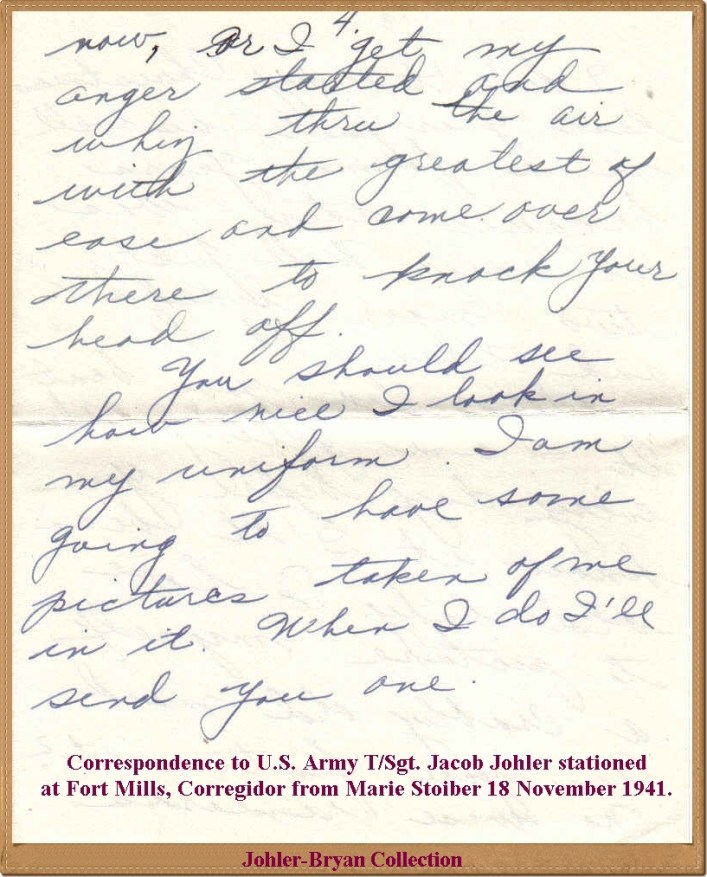 4.
now, or I get my
anger started and
whiz thru the air
with the greatest of
ease and come over
there to knock your
head off.
You should see
how nice I look in
my uniform. I am
going to have some
pictures taken of me
in it. When I do I'll
send you one.
Correspondence to U.S. Army T/Sgt. Jacob Johler stationed
at Fort Mills, Corregidor from Marie Stoiber 18 November 1941.
Johler-Bryan Collection